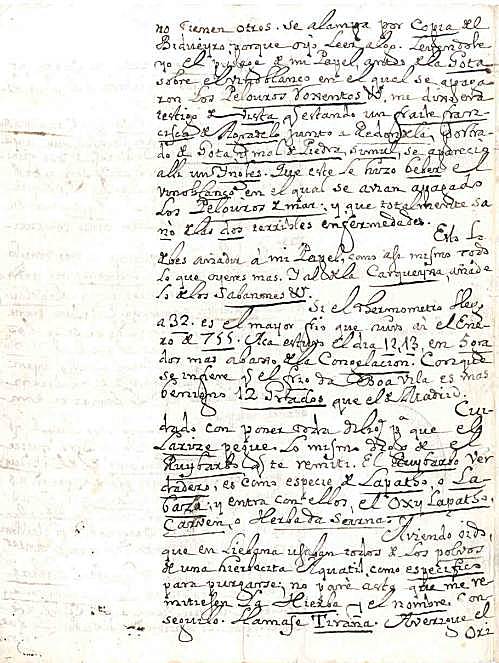 no tienen otros. Se alampa por Copia del
porque oyó leer algo. Leyendole
yo el passage de mi Papel, antes de la Gota
sobre el vino blanco en el qual se apaga
ron los Pelouros &c. me dixo era
testigo de Vista, y estando un fraile Fran
cisco de junto a Redondela, postra
do de Gota, y mal de Piedra, simul, se aparecio
alli un Ynglés. Que este le hizo beber el
vino blanco en el qual se avian apagado
los Pelouros de mar, y que totalmente sa
nó de las dos terribles enfermedades.
Esto lo
debes añadir á mi Papel, como asi mismo todo
lo que oyeres mas. Y al de la Carqueyxa, añade
lo de los Sabañones &c.
Si el Thermometro llegó
a 32. es el mayor frio que huvo ai el Ene
ro de 755. Aca estuvo el dia 12, 13, en 5 gra
dos mas abaxo de la Congelacion. Con que
se infiere q el frio da Boa Vila es mas
benigno 12 Grados que el de Madrid.
Cui
dado con poner toda diligª pª que el
Larize pegue. Lo mismo digo de el
Ruybarbo q te remiti. El Ruybarbo ver
dadero, es como especie de Lapatho, o La
baza, y entra con ellos, el Oxylapatho,
o Herba da
Aviendo oido,
que en Liebana usaban todos de los polvos
de una hierbecita Aquatil, como especifico
para purgarse, no paré asta que me re
mitiesen la Hierba y el nombre. Con
seguilo. Llamase Tiraña. Averigue el
Oxi